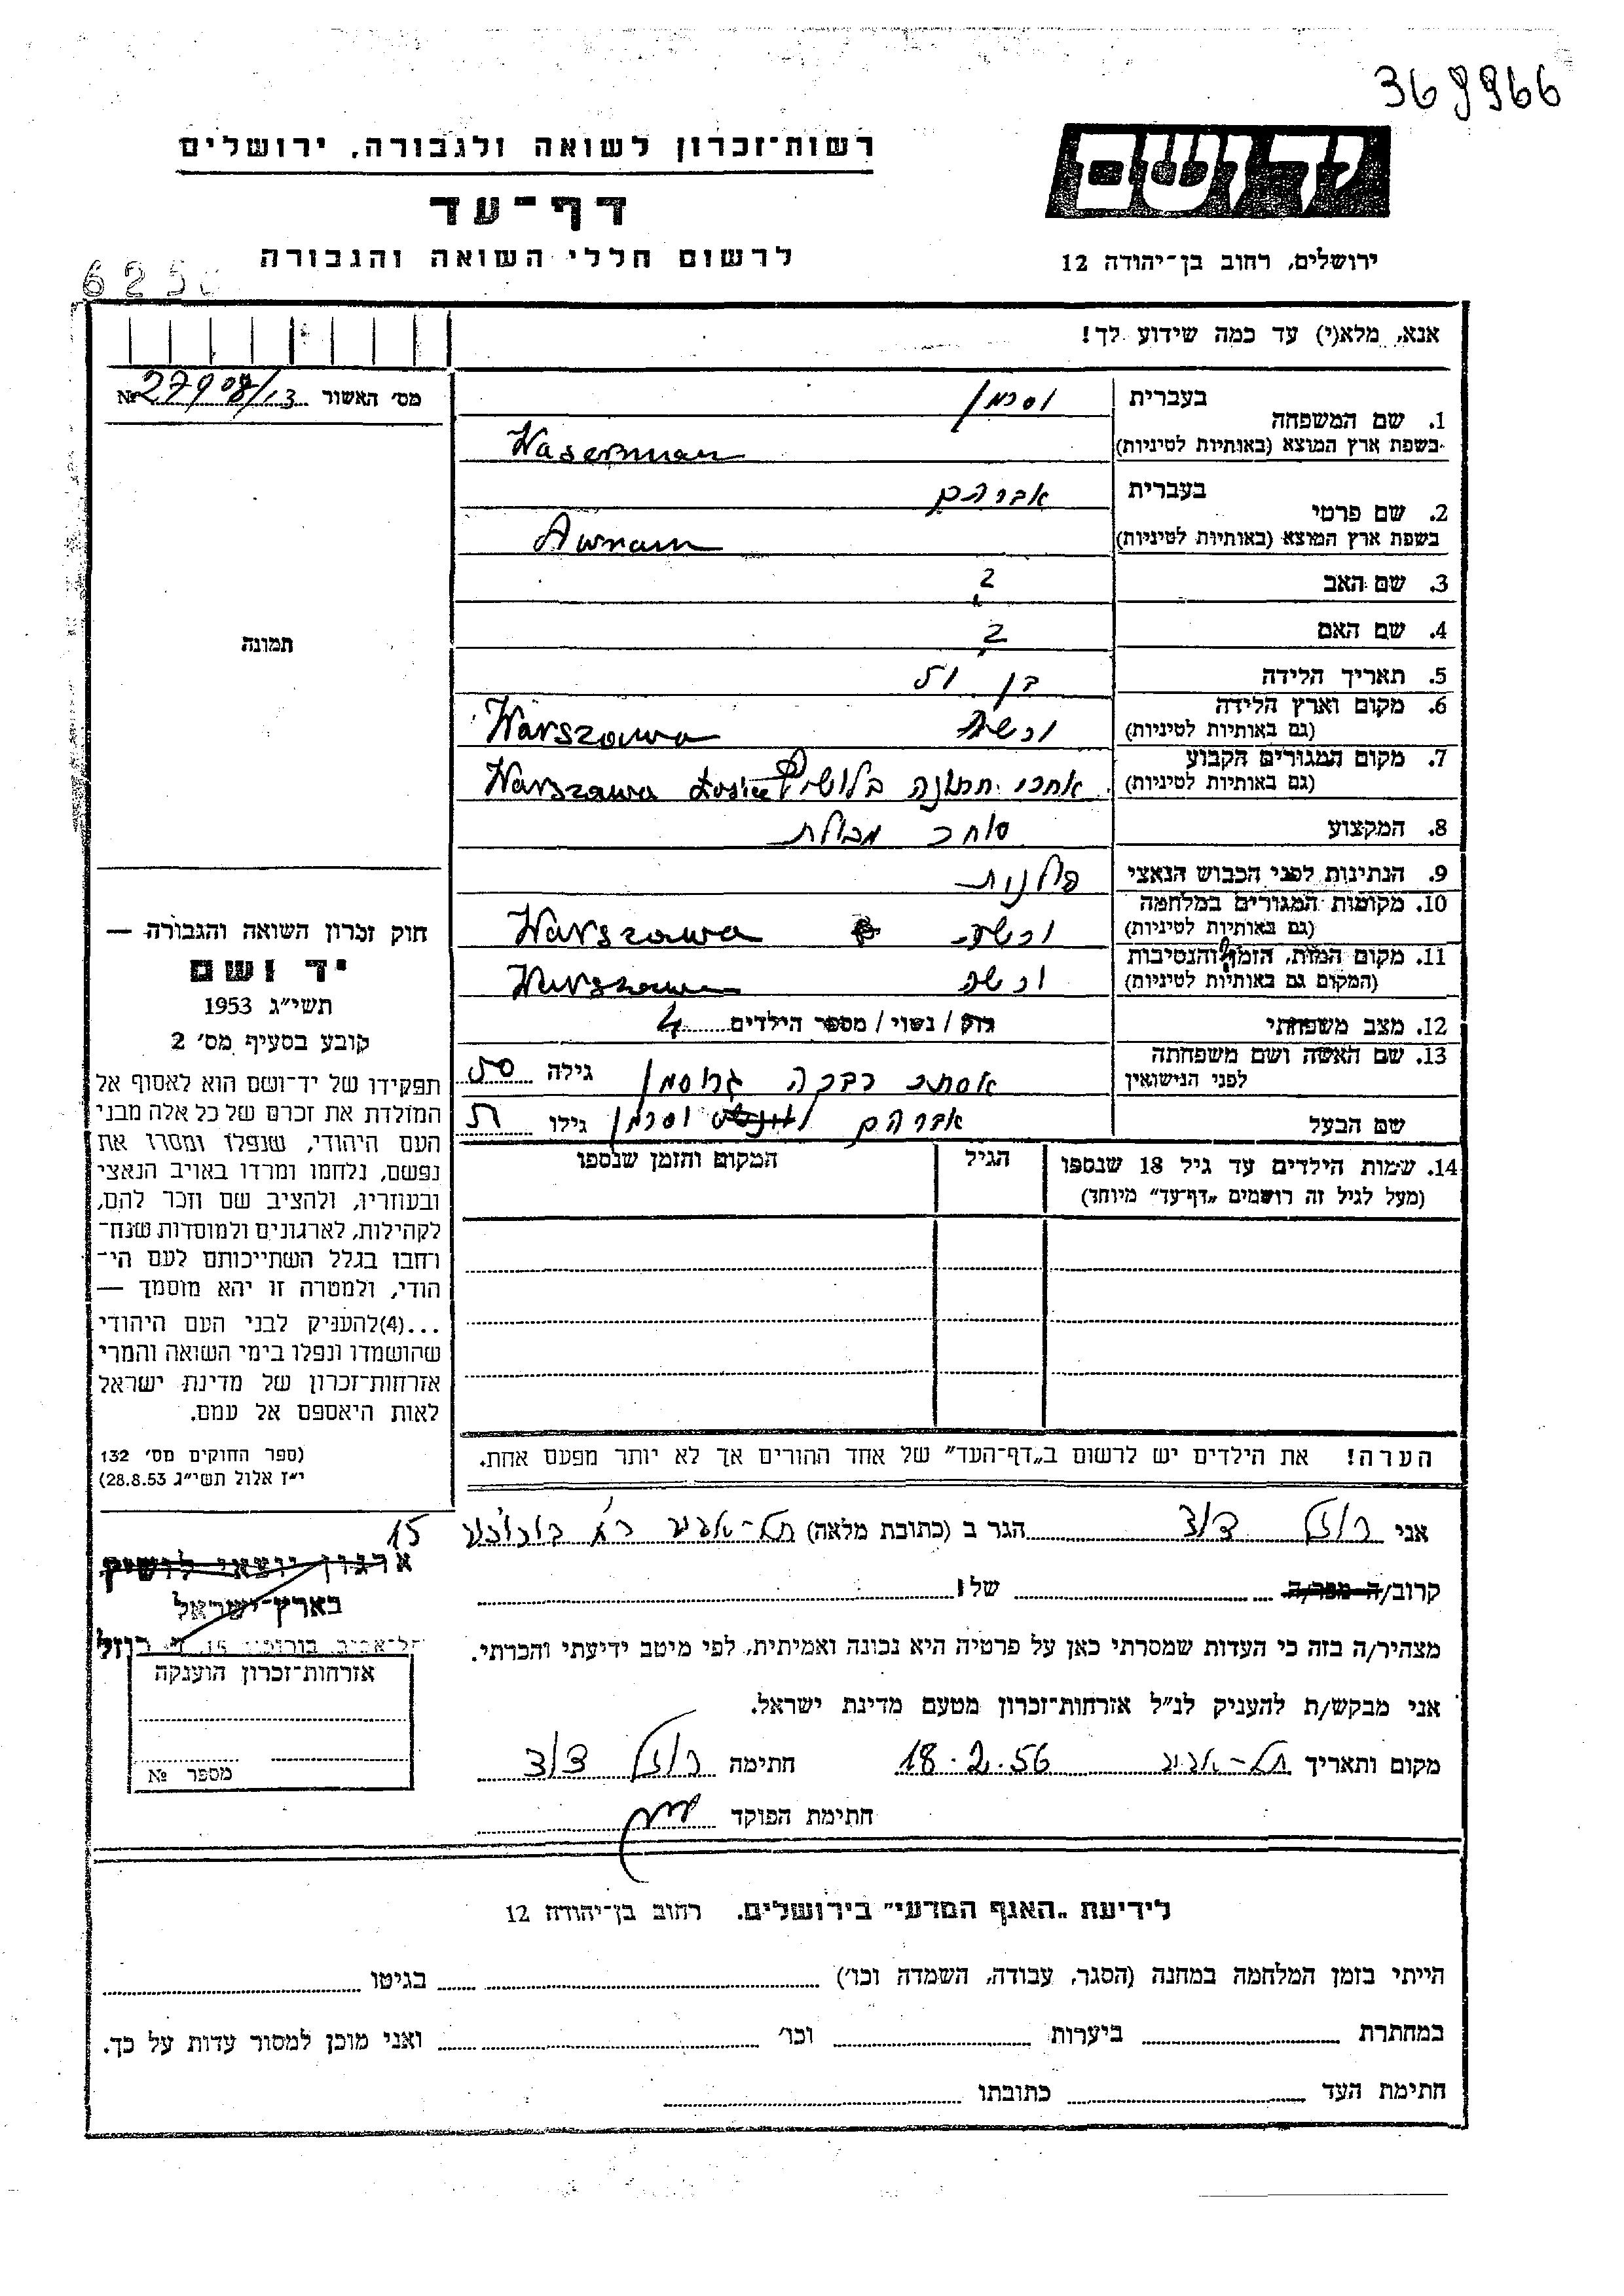 369966
יד ושם
רשות־זכרון לשואה ולגבורה, ירושלים
דף־עד
לרשום חללי השואה והגבורה
ירושלים, רחוב בן־יהודה 12
625
אנא, מלא(י) עד כמה שידוע לך!
מס׳ האשור № 27908/13
1. שם המשפחה
בעברית וסרמן
בשפת ארץ המוצא (באותיות לטיניות) Waserman
2. שם פרטי
בעברית אברהם
בשפת ארץ המוצא (באותיות לטיניות) Awram
3. שם האב ?
4. שם האם ?
5. תאריך הלידה בן
6. מקום וארץ הלידה
(גם באותיות לטיניות) ורשה Warszawa
7. מקום המגורים הקבוע
(גם באותיות לטיניות) אחרי חתונה בלושיץ Warszawa Łosice
8. המקצוע סוחר מכולת
9. הנתינות לפני הכבוש הנאצי פולנית
10. מקומות המגורים במלחמה
(גם באותיות לטיניות) ורשה Warszawa
11. מקום המות, הזמן והנסיבות
(המקום גם באותיות לטיניות) ורשה Warszawa
12. מצב משפחתי רוק / נשוי / מספר הילדים 4
13. שם האשה ושם משפחתה
לפני הנישואין אסתר רבקה גרוסמן גילה
שם הבעל אברהם וסרמן גילו
14. שמות הילדים עד גיל 18 שנספו
(מעל לגיל זה רושמים „דף־עד״ מיוחד)
הגיל
המקום והזמן שנספו
הערה! את הילדים יש לרשום ב„דף־העד״ של אחד ההורים אך לא יותר מפעם אחת.
תמונה
חוק זכרון השואה והגבורה —
יד ושם
תשי״ג 1953
קובע בסעיף מס׳ 2
תפקידו של יד־ושם הוא לאסוף אל
המולדת את זכרם של כל אלה מבני
העם היהודי, שנפלו ומסרו את
נפשם, נלחמו ומרדו באויב הנאצי
ובעוזריו, ולהציב שם וזכר להם,
לקהילות, לארגונים ולמוסדות שנח־
רחבו בגלל השתייכותם לעם הי־
הודי, ולמטרה זו יהא מוסמך —
...(4)להעניק לבני העם היהודי
שהושמדו ונפלו בימי השואה והמרי
אזרחות־זכרון של מדינת ישראל
לאות היאספם אל עמם.
(ספר החוקים מס׳ 132
י״ז אלול תשי״ג 28.8.53)
אני רוזל דוד הגר ב (כתובת מלאה) תל-אביב רח׳ בורוכוב 15
ארגון יוצאי לושיץ
בארץ־ישראל
תל־אביב, בורוכוב 15, ד. רוזל
קרוב/ה מכר/ה של
מצהיר/ה בזה כי העדות שמסרתי כאן על פרטיה היא נכונה ואמיתית, לפי מיטב ידיעתי והכרתי.
אני מבקש/ת להעניק לנ״ל אזרחות־זכרון מטעם מדינת ישראל.
מקום ותאריך תל-אביב 18.2.56 חתימה רוזל דוד
חתימת הפוקד
אזרחות־זכרון הוענקה
מספר №
לידיעת „האגף המדעי״ בירושלים. רחוב בן־יהודה 12
הייתי בזמן המלחמה במחנה (הסגר, עבודה, השמדה וכו׳) בגיטו
במחתרת ביערות וכו׳ ואני מוכן למסור עדות על כך.
חתימת העד כתובתו